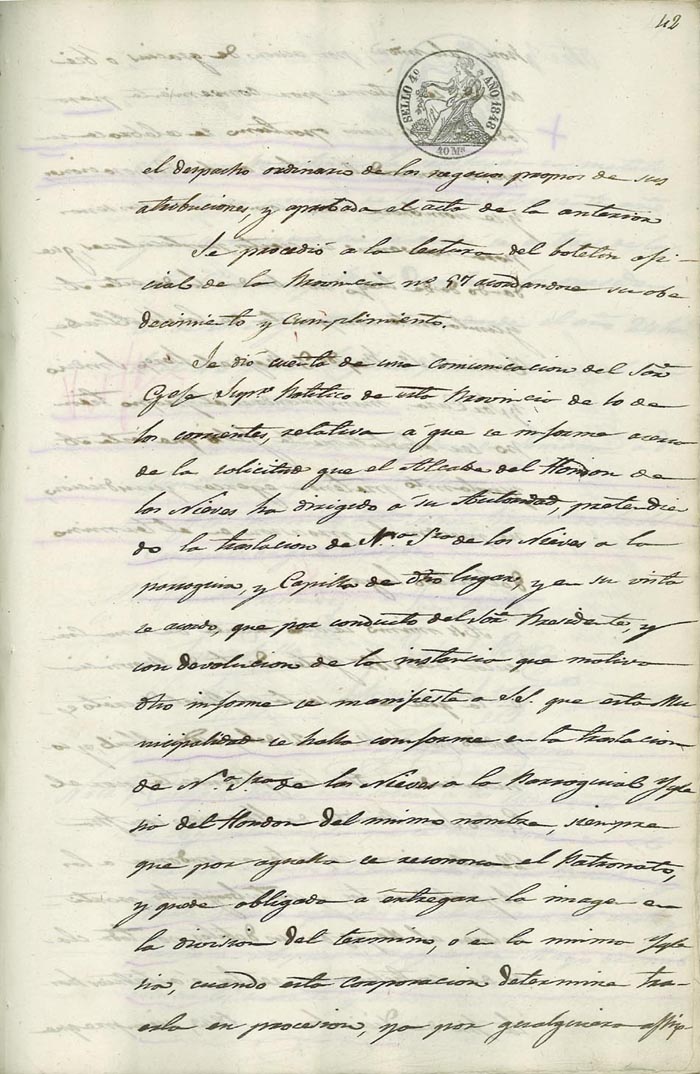 42
SELLO 4.º AÑO 1848
40 Ms
el despacho ordinario de los negocios propios de sus
atribuciones, y aprobada el acta de la anterior
Se procedió a la lectura del boletin ofi-
cial de la Provincia nº 97 acordandose su obe
decimiento y cumplimiento.
Se dió cuenta de una comunicacion del Sor
Gefe Supr. Politico de esta Provincia de 10 de
los corrientes, relativa á que se informe acerca
de la solicitud que el Alcalde del Hondon de
los Nieves ha dirigido a su Autoridad, pretendien
do la traslacion de N.ª Sra de las Nieves a la
parroquia, y Capilla de dho lugar, y en su vista
se acordó, que por conducto del Sor Presidente, y
con devolucion de la instancia que motiva
dho informe se manifieste a S.S. que esta Mu
nicipalidad se halla conforme en la traslacion
de N.ª Sra de las Nieves a la Parroquial Ygle
sia del Hondon del mismo nombre, siempre
que por aquella se reconozca el Patronato,
y quede obligada a entregar la imagen en
la division del termino, ó en la misma Ygle
sia, cuando esta corporacion determine tra-
erla en procesion, ya por qualquiera